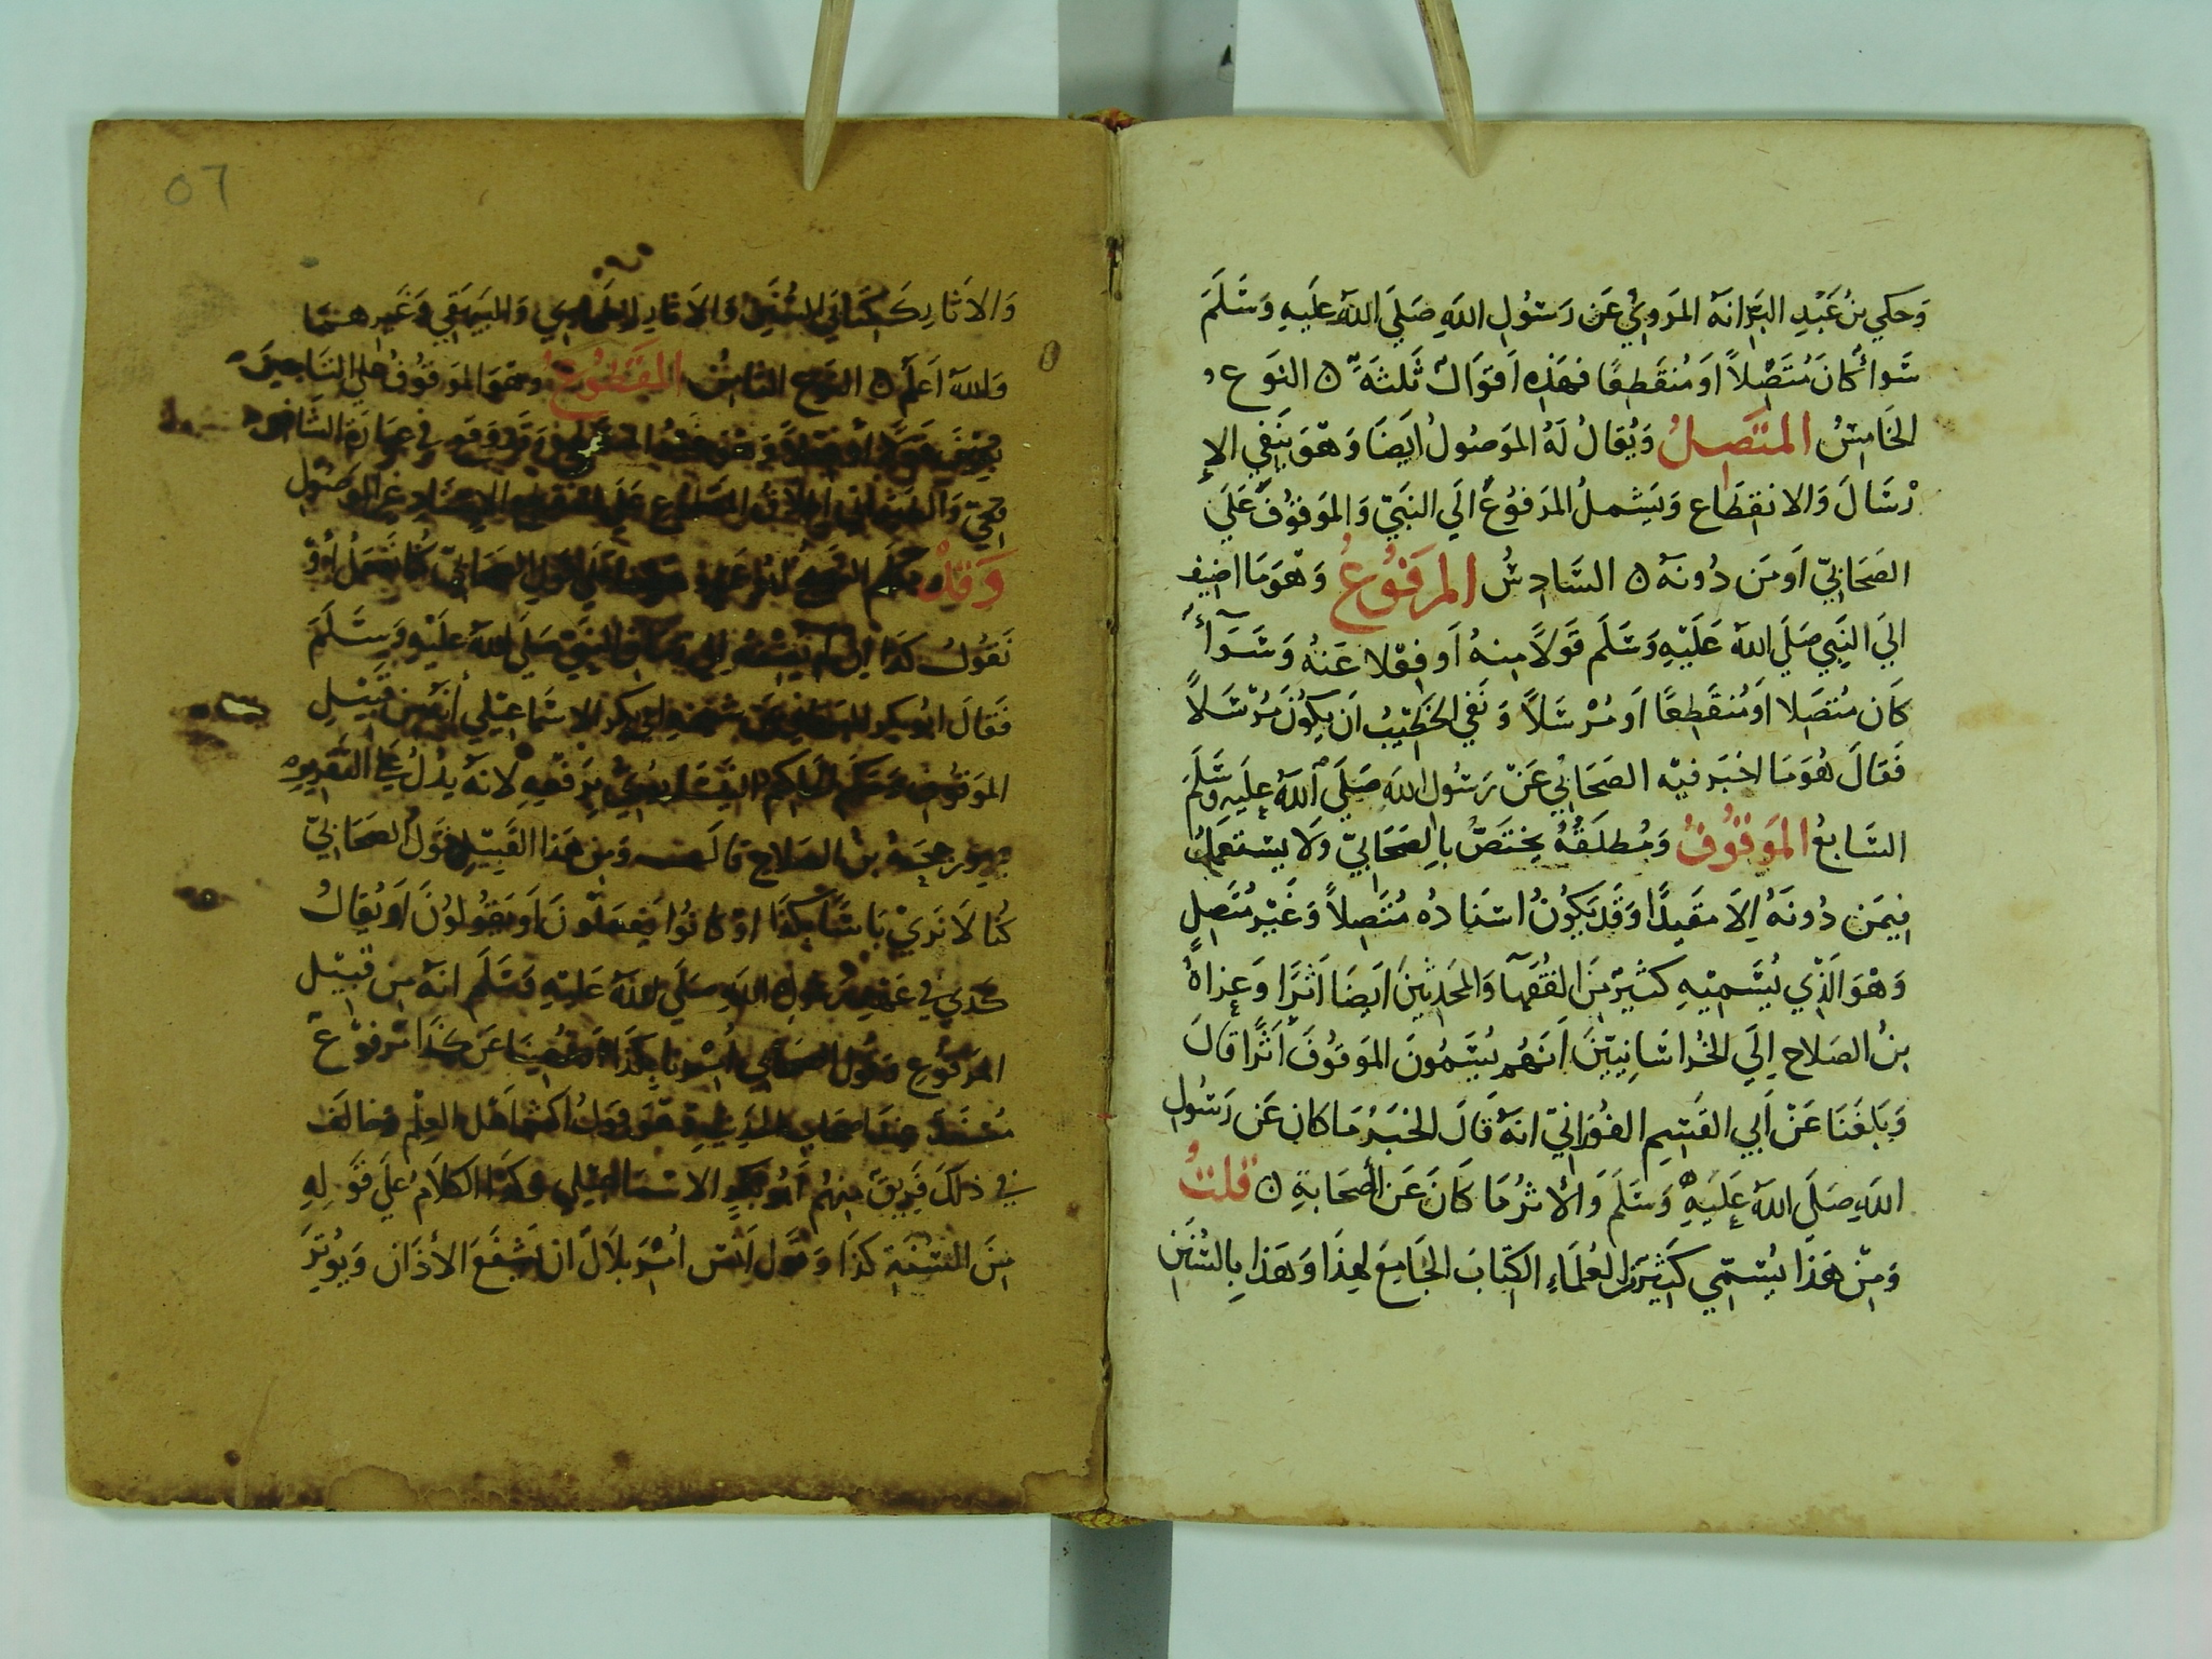 وَحَكي بنُ عَبْدِ البَرِّ انهُ المَروِيُّ عَن رَسُولِ اللهِ صَلَي اللهُ عَلَيهِ وَسَلَمَ
سَوا كانَ مُتَّصِلاً اَو مُنقَطِعًا فهَذِه اَقوَالٌ ثَلثَةٌ ۞ النَوع
الخَامِسُ المتَّصِلُ وَيُقالُ لَهُ المَوصُولُ ايَضَا وَهوَ يَنفي الإ
رْسَالَ وَالانقِطَاع وَيَشملُ المَرفوُعَ الَي النَبَيّ وَالمَوقوُفَ عَلَي
الصَحَابيّ اَو مَن دُونهُ ۞ السَّادِسُ المرفوُعُ وَهوَ مَا اضِيف
الَي النَبِي صَلَي اللهُ عَلَيْهِ وَسَلَم قَولاً مِنهُ اَو فِعْلا عَنهُ وَسَوَآءٌ
كَان مُتصَلا اَو مُنقَطِعًا اَو مُرْسَلاً وَنَفي الخَطِيبُ ان يكوُنَ مُرْسَلاً
فَقالَ هُوَ مَا اخبَر فيْه الصَحَابي عَنْ رَسُول اللهِ صَلَي اللهُ عَلَيهِ وَسَلَمَ
السَابعُ المَوقوُفُ وَمُطلَقُهُ يختَصُّ بالِصَحَابيّ وَلا يستَعملُ
فِيمَن دُونَهُ اِلا مقَيدًا وَقَد يَكُونُ اسْنادُه مُتَّصِلاً وَغَيْر مُتَصِلٍ
وَهْوَ الَذِي يُسَميْهِ كثيْر مِنَ الفُقَهَآ وَالمحَدِثينَ ايَضَا اَثرَا وَعزاهُ
بنُ الصَلاح اِلَي الخُراسَانِييّنَ اَنَهُم يُسَمونَ المَوقوُفَ اَثرًا قالَ
وَبَلغَنَا عَنْ اَبي القَسِمِ الفوُرَانيّ انهُ قَالَ الخبَرُ مَا كان عَن رَسُول
اللهِ صَلَي اللهُ عَلَيهِ وَسَلَم وَالأثرُ مَا كَانَ عَن الصَحَابةِ ۞ قلتُ
وَمِنْ هَذا يُسَمّي كَثيْر مِنَ العُلَمَاءِ الكِتابَ الجَامِعَ لِهذَا وَهَذا بِالسُنَنِ
٥٦
وَالاثارِ كَكتابَي السُنَنِ وَالاثارِ للطَحاوي وَالبَيهَقي وَغَيرِهمَا
وَاللهُ اَعلَم ۞ النَوع الثامِنُ المَقطوُعُ وَهوَ المَوقوُفُ عَلي التَابعِينَ
في عبَارَة الشَافِعي
غَير المَوصُول
وَقدْ
نقوُلُ كذَا اِن لَم يُضِفهُ الي زمَان النَبيّ صَلَي اللهُ عَلَيْهِ وَسَلَمَ
فقالَ ابُو بَكر البَرقاني عَن شَيخهِ ابي بَكر الاسْماعِيْلي انهُ مِن قبيْلِ
المَوقوُف وَحَكَم الحَاكم النَيسَابُوريّ برَفعِهِ لانهُ يدُلُ عَلَي التَقريرِ
وَرَجحَهُ بنُ الصَلاح قالَ وَمِن هَذا القَبيْلِ قوَلُ الصَحَابيّ
كُنا لا نَرَيْ بَاسًا بكذَا اوْ كانوُا يَفعَلوُنَ اَو يَقوُلوُنَ اَو يُقالُ
كذي في عَهْدِ رسُول اللهِ صَلَي اللهُ عَلَيْهِ وَسَلَم انهُ مِن قبيْل
المَرفوُع وَقوُل الصَحابي اُمِرْنا بكذَا اَو نُهِينَا عَن كذَا مَرفوْعٌ
مُسْنَدٌ عِندَ اصحَاب الحَدِيثِ وَهوَ قولُ اكثر اَهْل العِلْم وَخالفَ
في ذلكَ فَرِيقٌ مِنهُم اَبُو بَكرٍ الاسْمَاعيْلي وَكذَا الكَلامُ عَلَي قوَلِهِ
مِنَ السُنةِ كذَا وَقوَل انَس اُمِرَ بلالٌ ان يَشفَعَ الأذَان وَيُوترَ